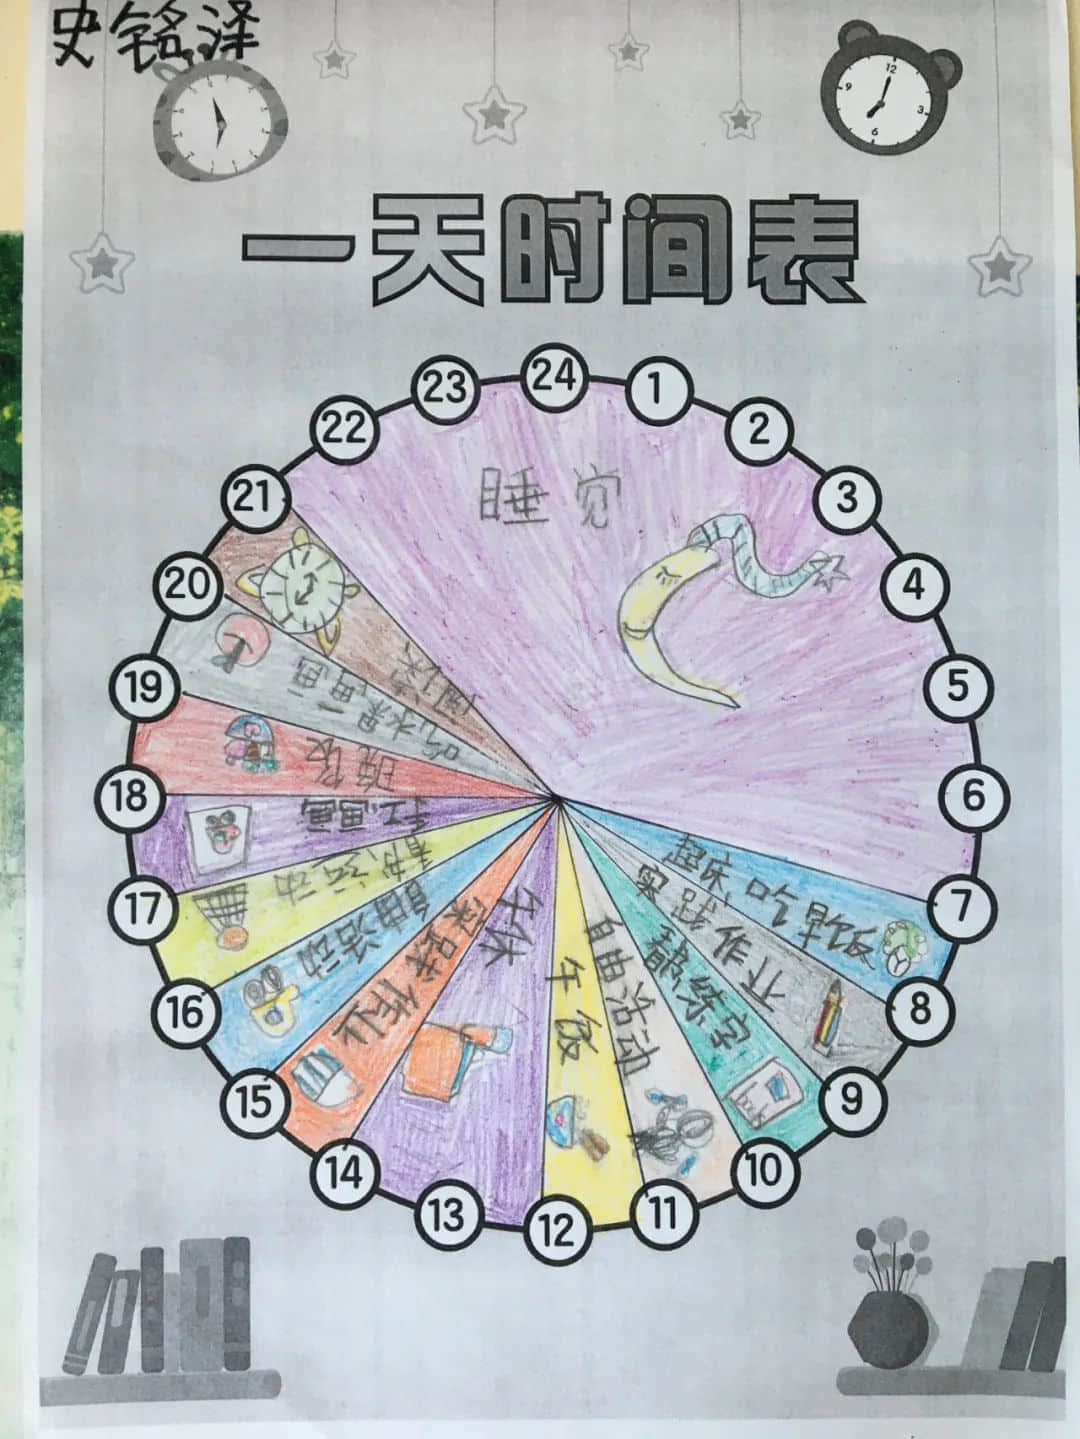 史铭泽
12
9
3
6
一天时间表
24
1
2
3
4
5
6
7
8
9
10
11
12
13
14
15
16
17
18
19
20
21
22
23
睡觉
起床吃早饭
实践作业
练字
自由活动
午饭
午休
作业
自由活动
运动
手工画画
晚饭
吃水果